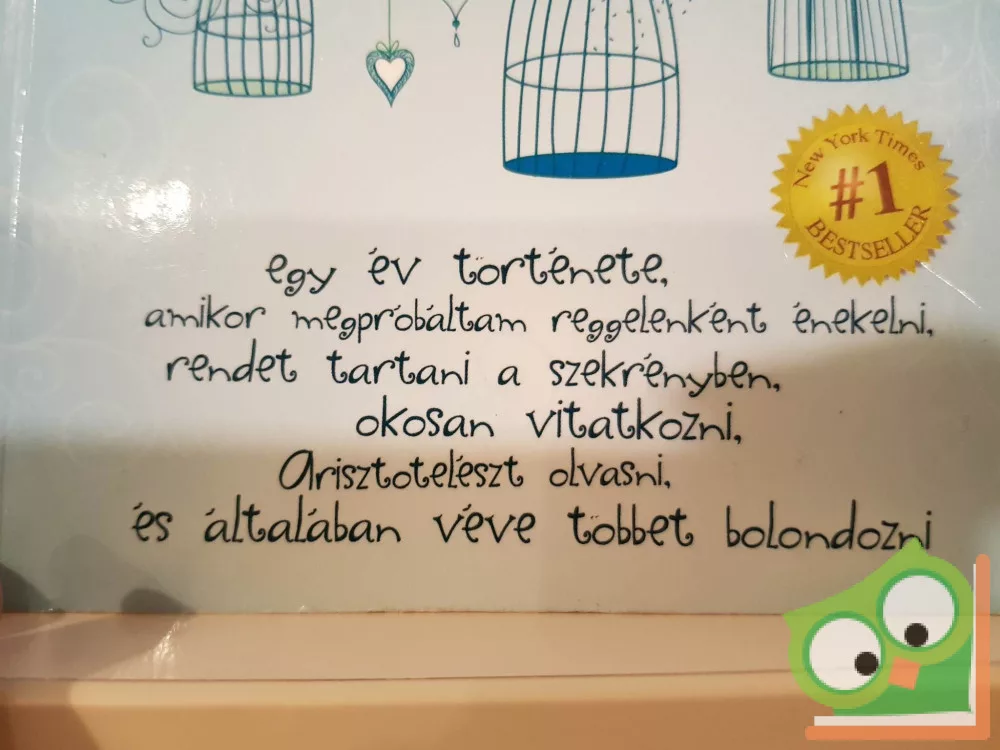 New York Times
#1
BESTSELLER
egy év története,
amikor megpróbáltam reggelenként énekelni,
rendet tartani a szekrényben,
okosan vitatkozni,
Arisztotelészt olvasni,
és általában véve többet bolondozni